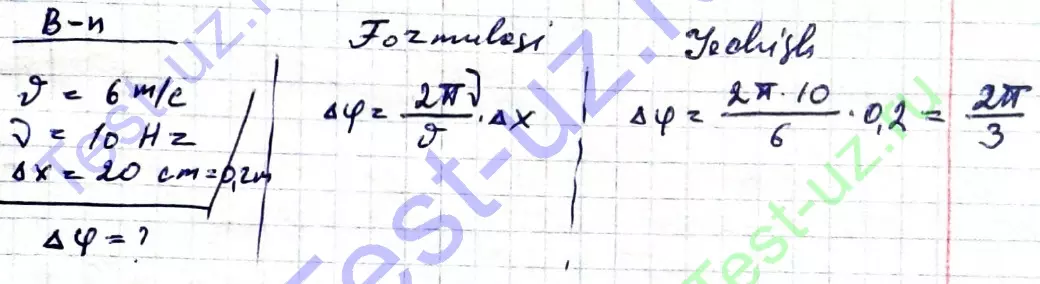 B-n
ϑ = 6 m/c
ν = 10 Hz
Δx = 20 cm = 0,2m
Δφ = ?
Formulasi
Δφ = 2πν/ϑ · Δx
Yechish
Δφ = 2π · 10/6 · 0,2 = 2π/3
Test-uz.ru
Test-uz.ru
Test-uz.ru